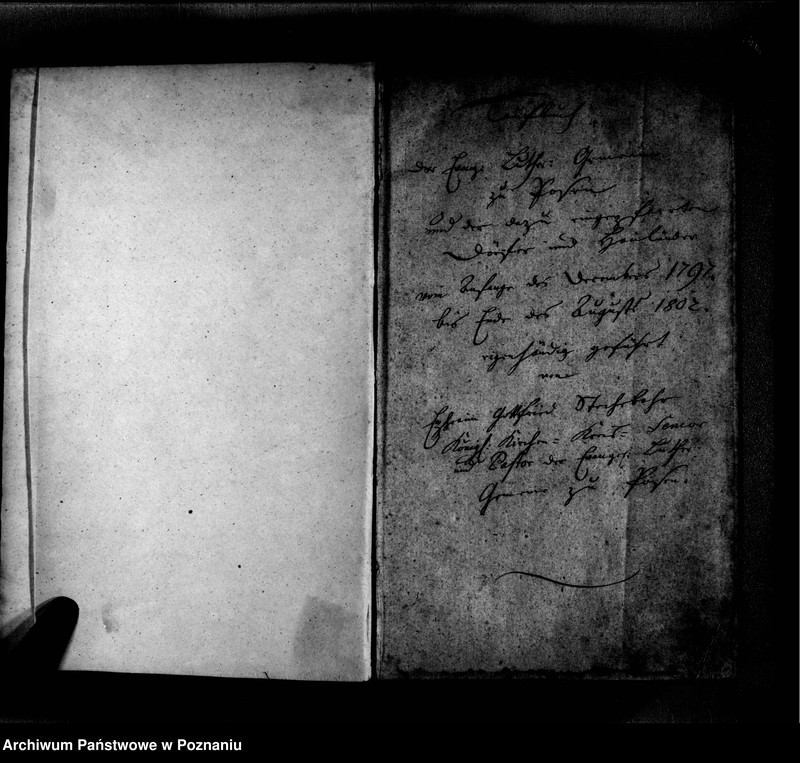 Taufbuch
der Evang: Luther: Gemeine
zu Posen
und der dazu eingepfarrten
Dörfer und Hauländer
vom Anfange des Decembers 1797.
bis Ende des Augusts 1802.
eigenhändig geführt
von
Ephraim Gottfried Stechebahr
Königl. Kirchen- Kreis- Senior
und Pastor der Evangel. Luther.
Gemeine zu Posen.
Archiwum Państwowe w Poznaniu